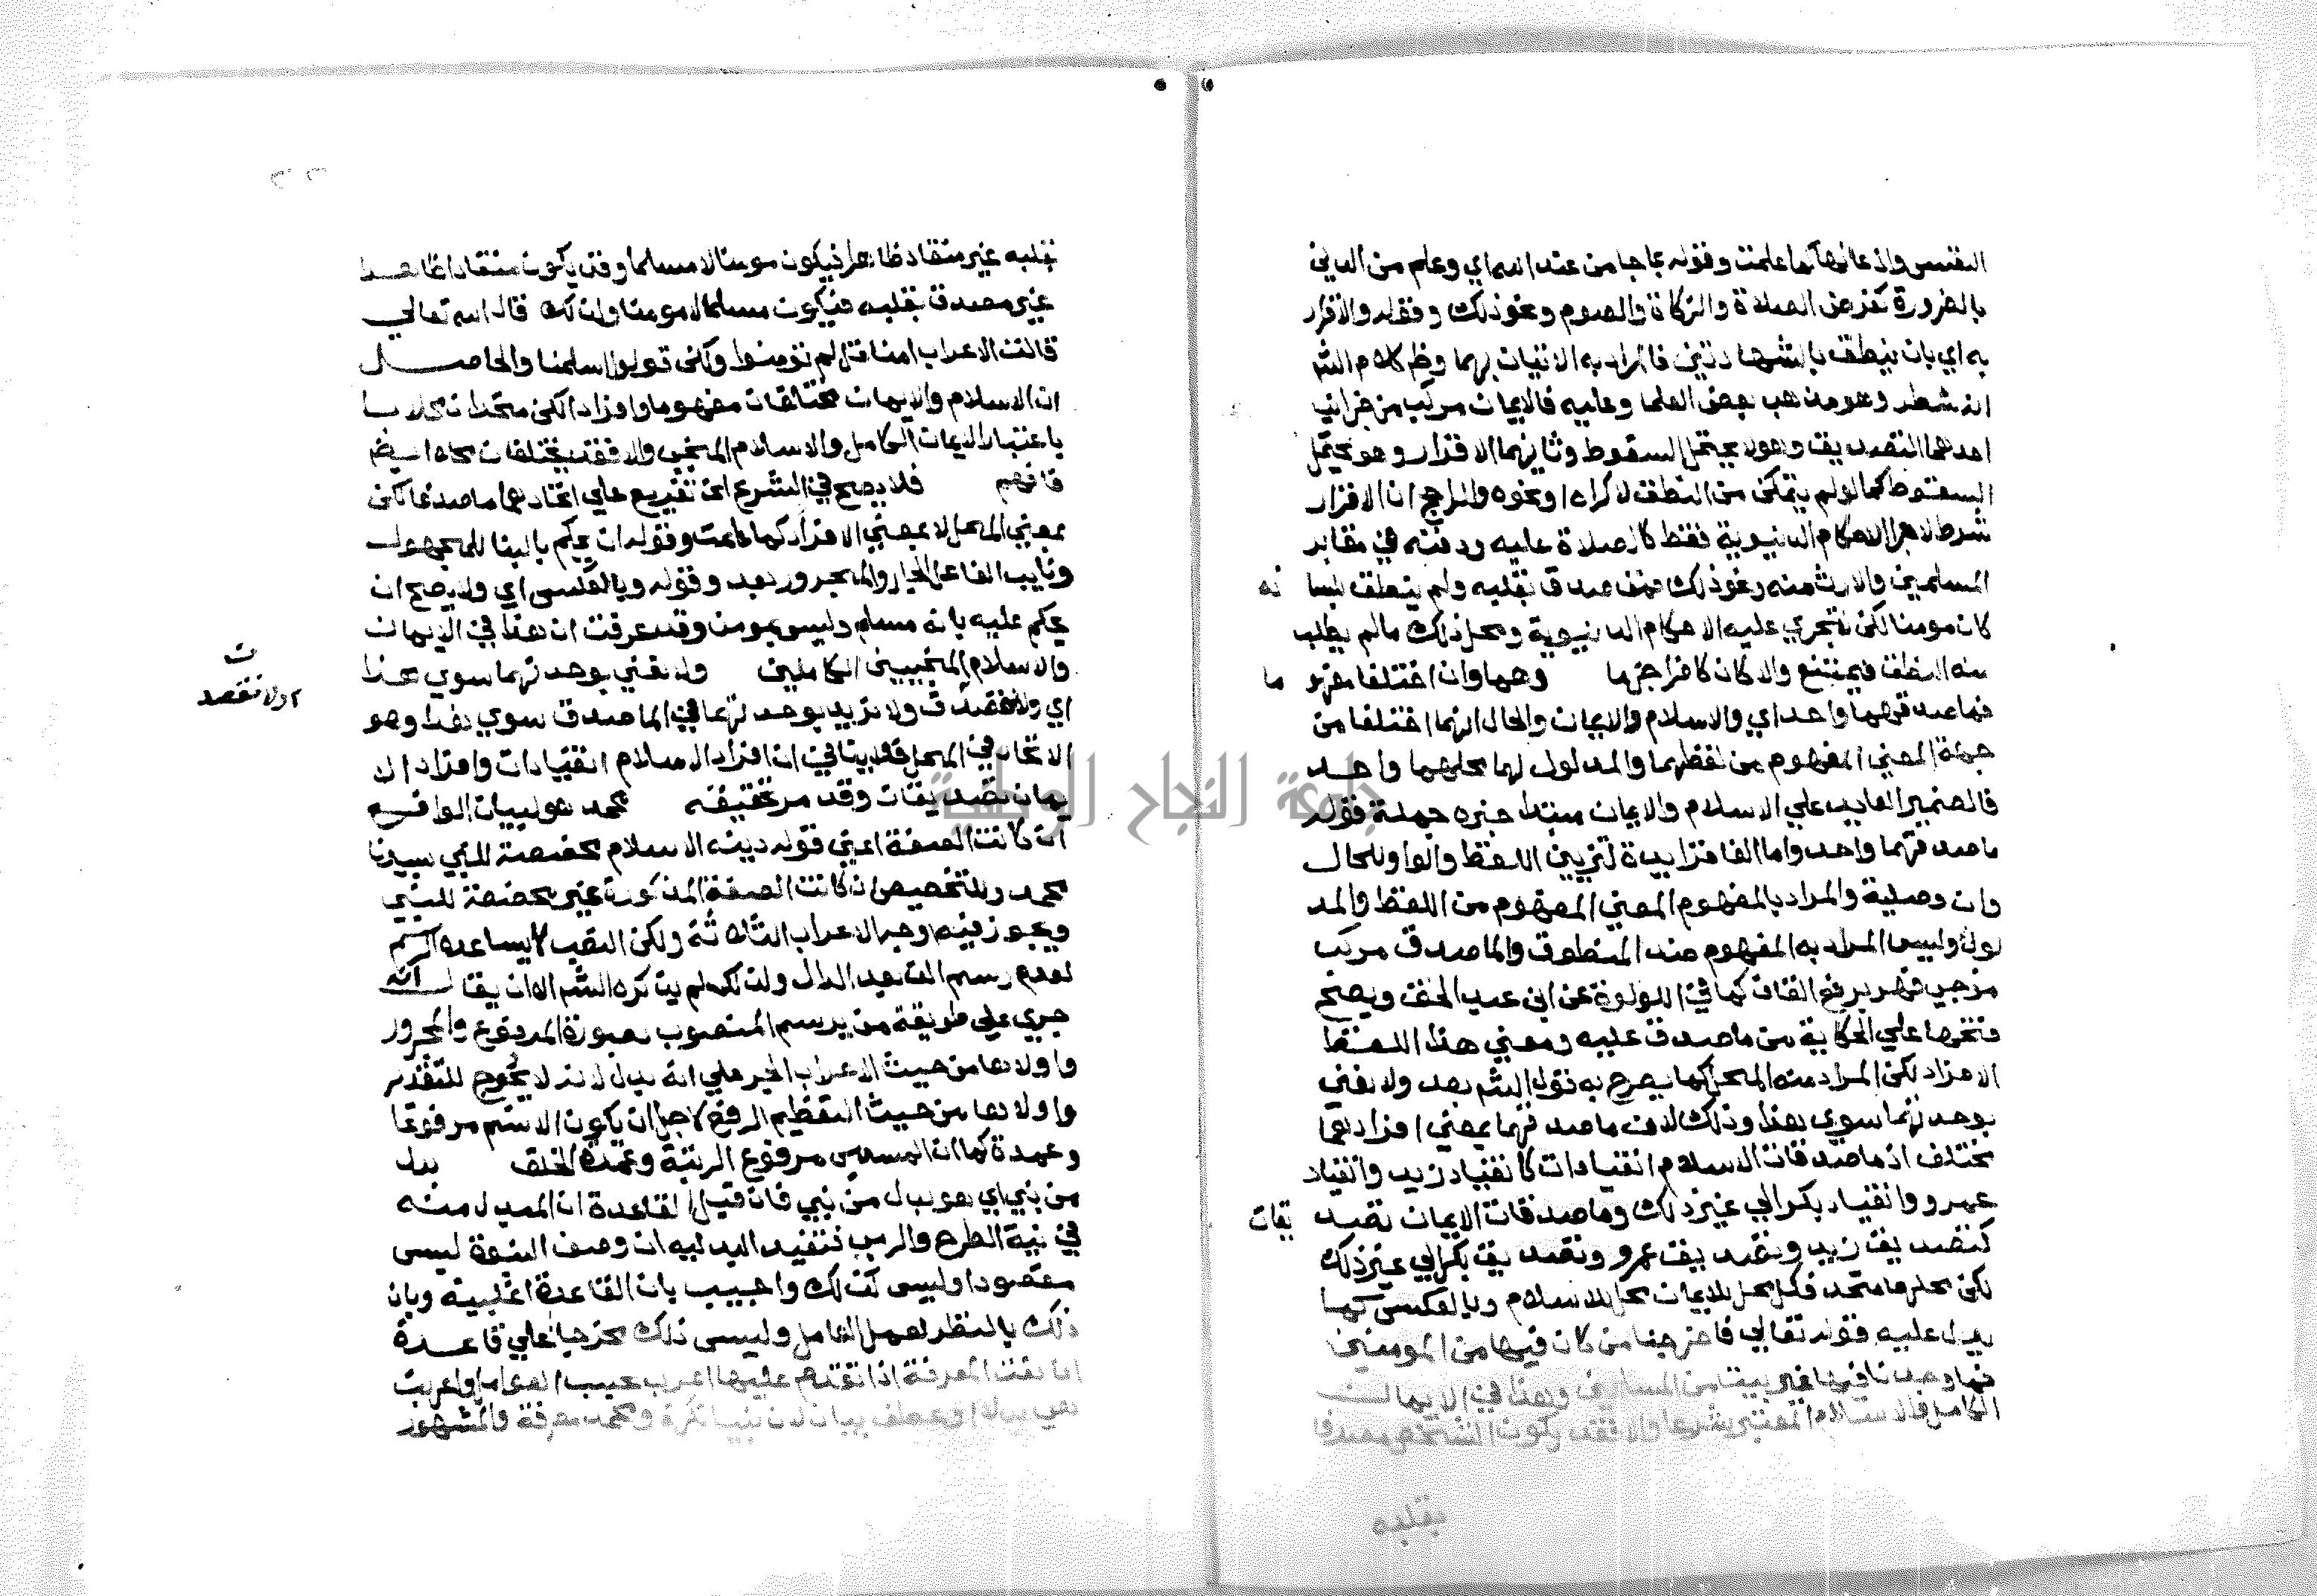 النفس واذعانها كما علمت وقوله بما جا من عند الله اي وعلم من الدين
بالضرورة كفرض الصلاة والزكاة والصوم ونحو ذلك وقوله والاقرار
به اي بان ينطق بالشهادتين فالمراد به الاتيان بهما وظ كلام الش
انه شطر وهو مذهب بعض العلما وعليه فالايمان مركب من جزاين
احدهما التصديق وهو لا يحتمل السقوط وثانيهما الاقرار وهو يحتمل
السقوط كما لو لم يتمكن من النطق لاكراه او نحوه والراجح ان الاقرار
شرط لاجرا الاحكام الدنيوية فقط كالصلاة عليه ودفنه في مقابر
المسلمين والارث منه ونحو ذلك فمن صدق بقلبه ولم ينطق بلسا نه
كان مومنا لكن لا تجري عليه الاحكام الدنيوية ومحل ذلك ما لم يطلب
منه النطق فيمتنع والا كان كافرا جزما وهما وان اختلفا مفهو ما
فما صدقهما واحد اي والاسلام والايمان والحال انهما اختلفا من
جهة المعني المفهوم من لفظهما والمدلول لهما محلهما واحد
فالضمير العايد علي الاسلام والايمان مبتدا خبره جملة قوله
ماصدقهما واحد واما الفا فزايدة لتزيين اللفظ والواو للحال
وان وصلية والمراد بالمفهوم المعني المفهوم من اللفظ والمد
لول وليس المراد به المفهوم ضد المنطوق والماصدق مركب
مزجي فهو برفع القاف كما في اليولوة عن ابن عبد الحق ويصح
فتحها علي الحكاية من ماصدق عليه ومعني هذا اللفظ
الافراد لكن المراد منه المحل كما يصرح به قول الش بعد ولا نعني
بوحدتهما سوي هذا وذلك لان ماصدقهما بمعني افرادهما
مختلف اذ ماصدقات الاسلام انقيادات كانقياد زيد وانقياد
عمرو وانقياد بكر الي غير ذلك وماصدقات الايمان تصد يقات
كتصديق زيد وتصديق عمرو وتصديق بكر الي غير ذلك
لكن محلهما متحد فكل محل للايمان محل للاسلام وبالعكس كما
يدل عليه قوله تعالي فاخرجنا من كان فيها من المومنين
فما وجدنا فيها غير بيت من المسلمين وهذا في الايمان
الكامل والاسلام المعتبر شرعا والا فقد يكون الشخص مصدقا
بقلبه
بقلبه غير منقاد ظاهرا فيكون مومنا لا مسلما وقد يكون منقادا ظاهرا
غير مصدق بقلبه فيكون مسلما لا مومنا ولذلك قال الله تعالي
قالت الاعراب امنا قل لم تومنوا ولكن قولوا اسلمنا والحاصل
ان الاسلام والايمان مختلفان مفهوما وافرادا لكن متحدان محلا
باعتبار الايمان الكامل والاسلام المنجي والا فقد يختلفان محلا ايض
فافهم فلا يصح في الشرع الخ تفريع علي اتحادهما ماصدقا لكن
بمعني المحل لا بمعني الافراد كما علمت وقوله ان يحكم بالبنا للمجهول
ونايب الفاعل الجار والمجرور بعد وقوله وبالعكس اي ولا يصح ان
يحكم عليه بانه مسلم وليس بمومن وقد عرفت ان هذا في الايمان
والاسلام المنجيين الكاملين ولا نعني بوحدتهما سوي هذا
اي ولا نقصد ولا نريد بوحدتهما في الماصدق سوي هذا وهو
الاتحاد في المحل فلا ينافي ان افراد الاسلام انقيادات وافراد الا
يمان تصديقات وقد مر تحقيقه محمد هو لبيان الواقع
ان كانت الصفة اعني قوله دينه الاسلام مخصصة للنبي بسيدنا
محمد وللتخصيص ان كانت الصفة المذكورة غير مخصصة للنبي
ويجوز فيه اوجه الاعراب الثلاثة ولكن النصب لا يساعده الرسم
لعدم رسم الف بعد الدال ولذلك لم يذكره الش الا ان يقال انه
جري علي طريقة من يرسم المنصوب بصورة المرفوع والمجرور
واولاها من حيث الاعراب الجر علي انه بدل لانه لا يحوج للتقدير
واولاها من حيث التعظيم الرفع لاجل ان يكون الاسم مرفوعا
وعمدة كما ان المسمي مرفوع الرتبة وعمدة الخلق بدل
من نبي اي هو بدل من نبي فان قيل القاعدة ان المبدل منه
في نية الطرح والرمي فتفيد البدلية ان وصف النبوة ليس
مقصودا وليس كذلك واجيب بان القاعدة اغلبية وبان
ذلك بالنظر لعمل العامل وليس ذلك مخرجا علي قاعدة
ان نعت المعرفة اذا تقدم عليها اعرب بحسب العوامل واعربت
هي بدلا او عطف بيان لان نبيا نكرة ومحمد معرفة والمشهور
ت
اولا نقصد
جامعة النجاح الوطنية